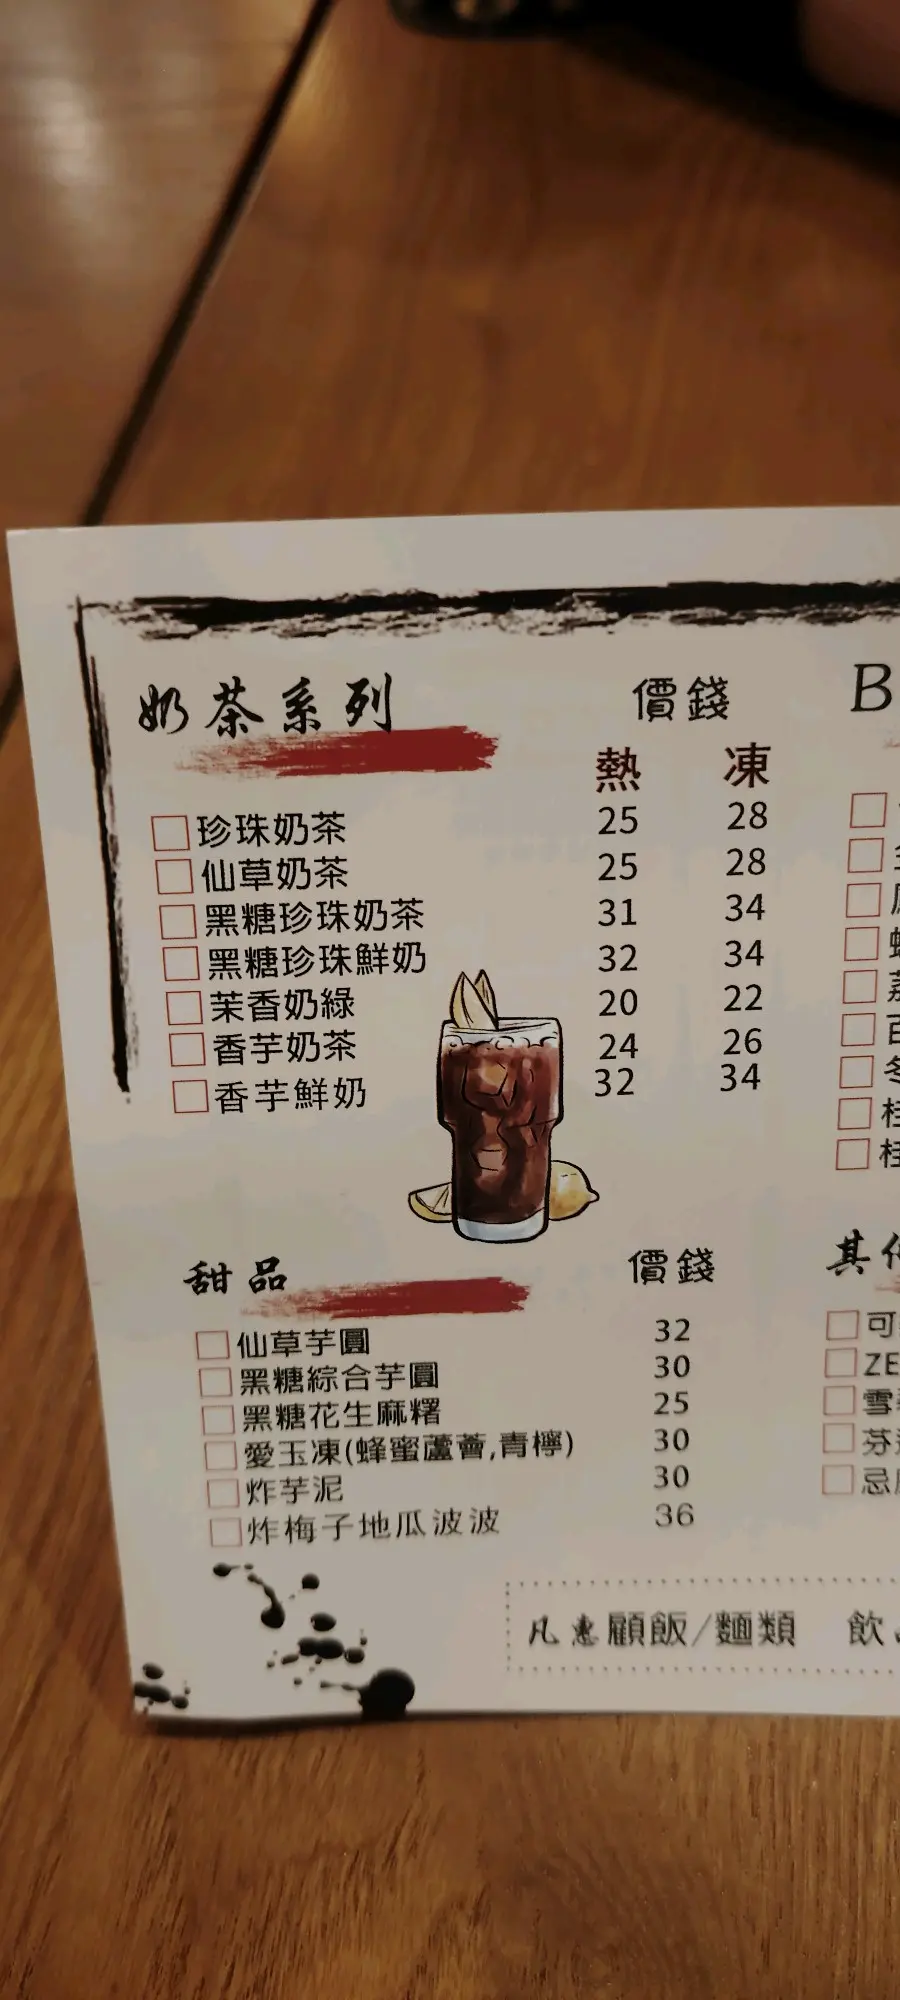 奶茶系列 價錢
熱 凍
珍珠奶茶 25 28
仙草奶茶 25 28
黑糖珍珠奶茶 31 34
黑糖珍珠鮮奶 32 34
茉香奶綠 20 22
香芋奶茶 24 26
香芋鮮奶 32 34
甜品 價錢
仙草芋圓 32
黑糖綜合芋圓 30
黑糖花生麻糬 25
愛玉凍(蜂蜜蘆薈,青檸) 30
炸芋泥 30
炸梅子地瓜波波 36
凡惠顧飯/麵類 飲
B
百
冬
桂
桂
其
可
ZE
雪
芬
忌